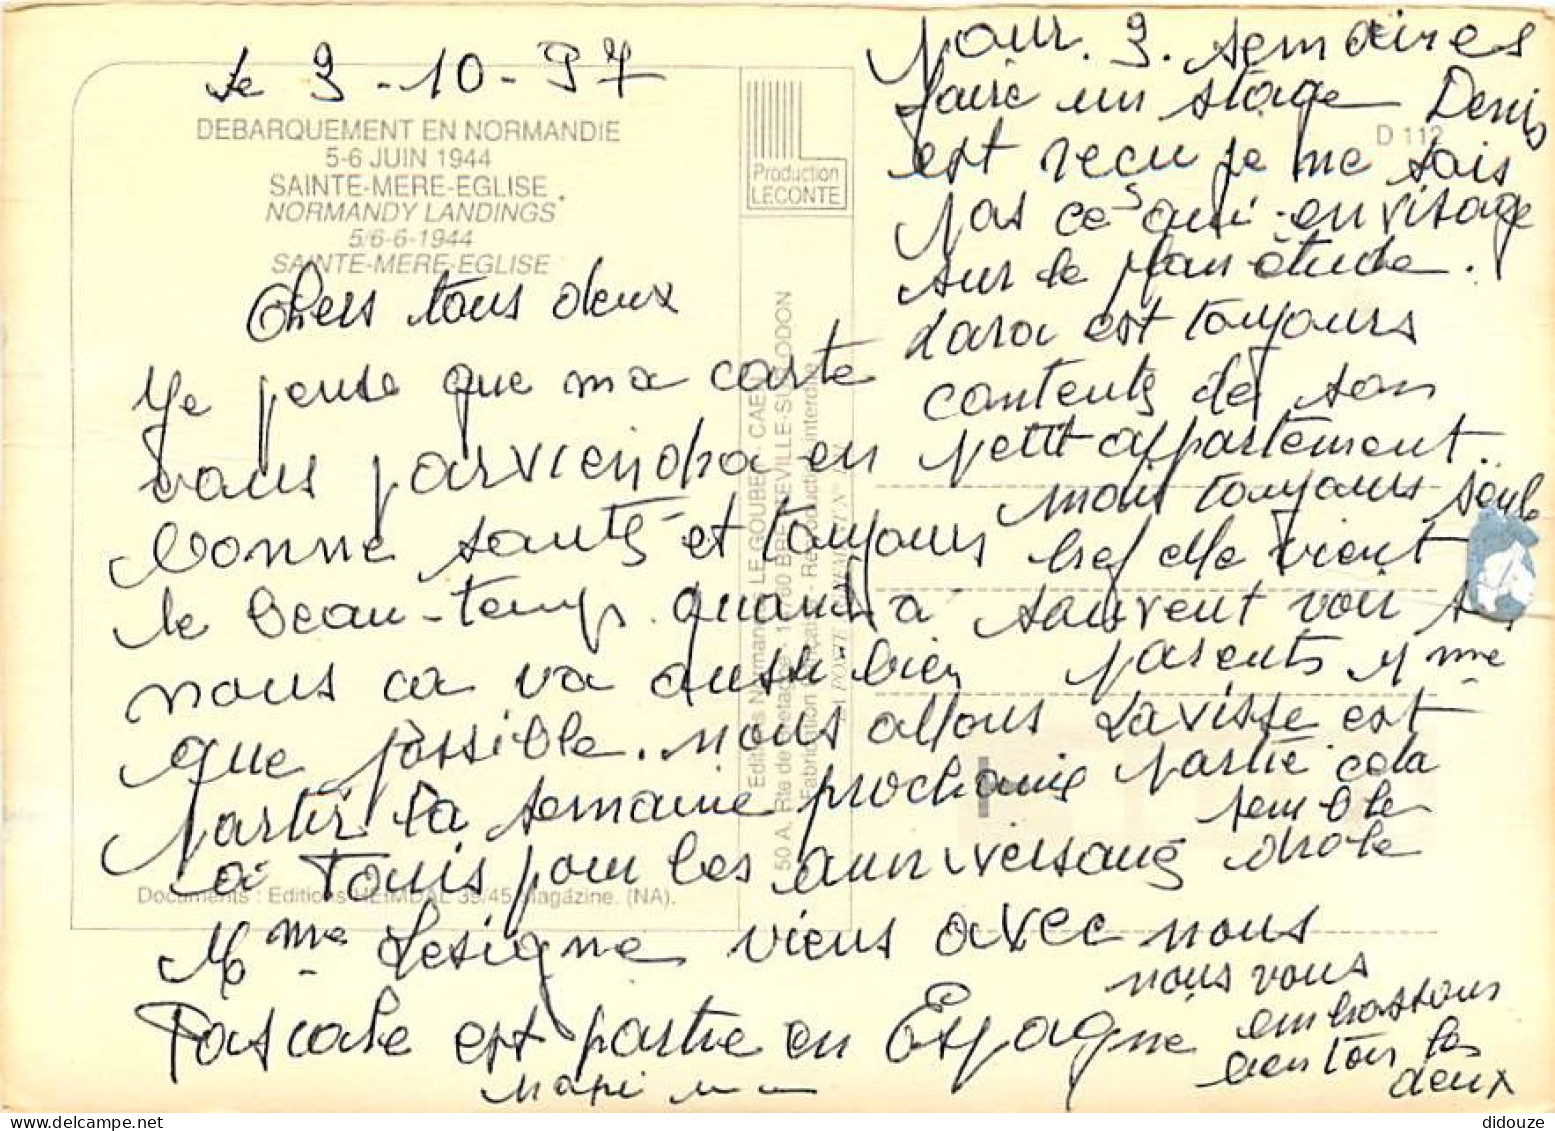 Le 9-10-97
DEBARQUEMENT EN NORMANDIE
5-6 JUIN 1944
SAINTE-MERE-EGLISE
NORMANDY LANDINGS
5/6-6-1944
SAINTE-MERE-EGLISE
Production
LECONTE
D 112
Chers tous deux
Je pense que ma carte
vous parviendra en
bonne santé et toujours
le beau-temps. quand à
nous ca va aussi bien
que possible. nous allons
partir la semaine prochaine
à Tours pour les anniversaires
Mme Lesigne viens avec nous
Pascale est partie en Espagne
pour 3 semaines
faire un stage Denis
est recu je ne sais
pas ce qui envisage
sur le plan étude.
Lara est toujours
contente de son
petit appartement.
mais toujours seule
bref elle vient
souvent voir ses
parents Mme
Lavisse est
partie cela
semble
drole
nous vous
embrassons
bien tous les
deux
Editions Normandes LE GOUBEY - CAEN
50 A, Rte de Bretagne - 14760 BRETTEVILLE-SUR-ODON
Fabrication Française - Reproduction interdite
Documents : Editions HEIMDAL 39/45 Magázine. (NA).
didouze